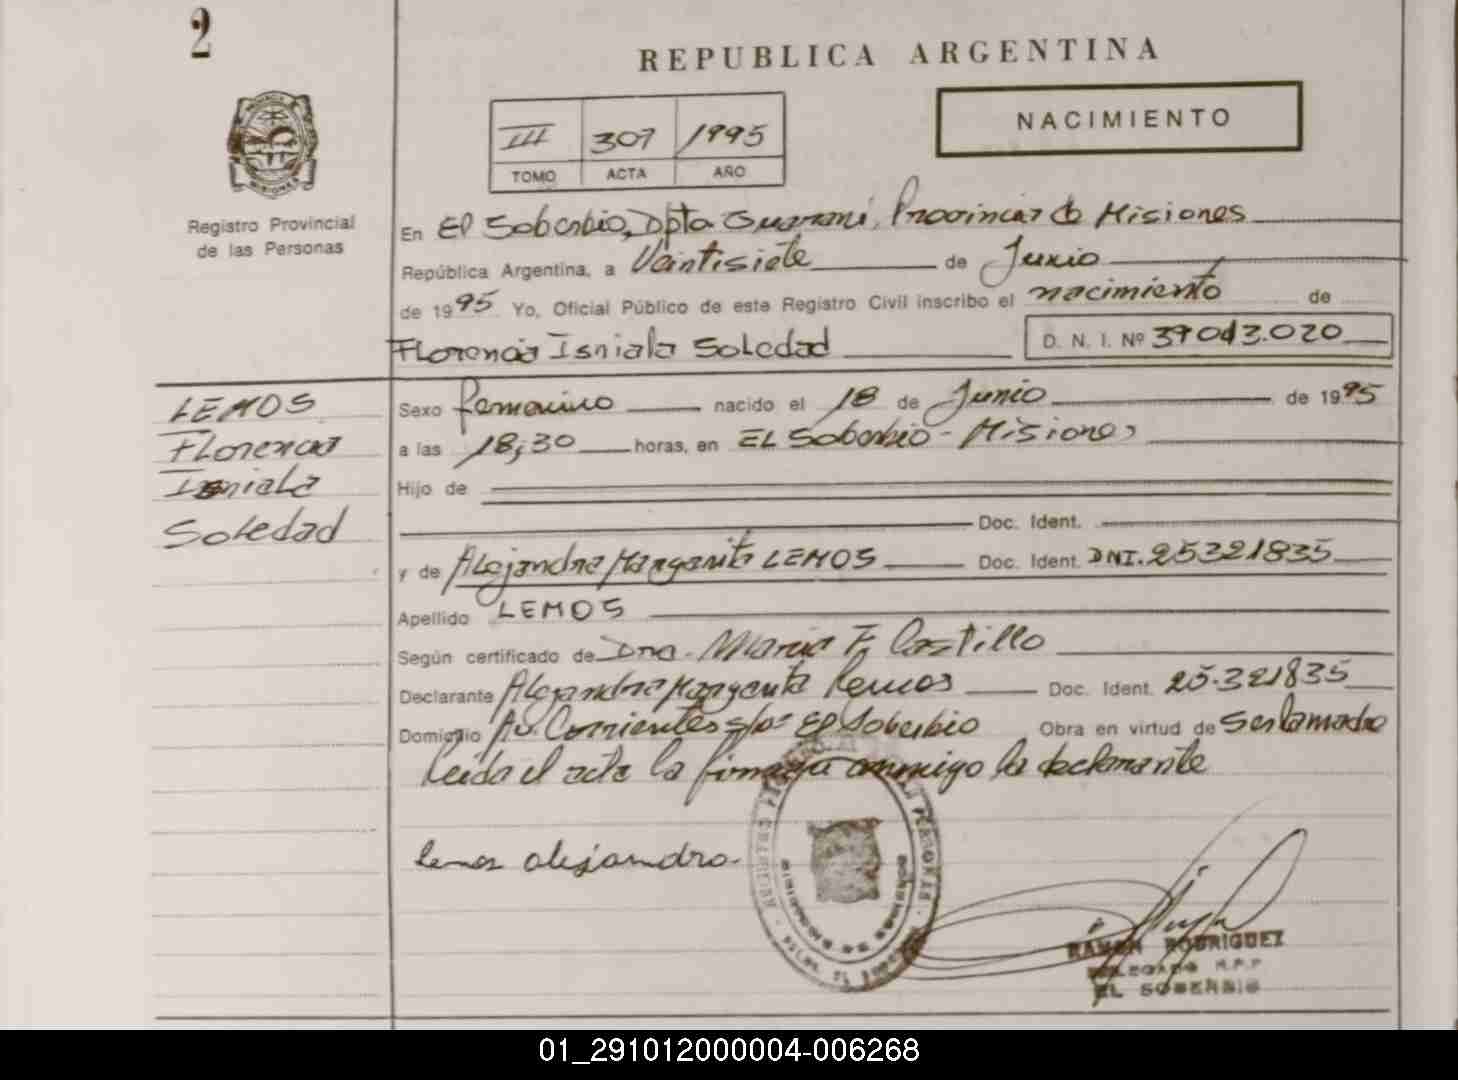 2
REPUBLICA ARGENTINA
NACIMIENTO
III 307 1995
TOMO ACTA AÑO
Registro Provincial
de las Personas
En El Soberbio, Dpto Guarani, Provincia de Misiones
República Argentina, a Veintisiete de Junio
de 1995 Yo, Oficial Público de este Registro Civil inscribo el nacimiento de
Florencia Isniala Soledad D. N. I. Nº 39043.020
LEMOS
Florencia
Isniala
Soledad
Sexo femenino nacido el 18 de Junio de 1995
a las 18,30 horas, en EL Soberbio - Misiones
Hijo de
Doc. Ident.
y de Alejandra Margarita LEMOS Doc. Ident. DNI. 25321835
Apellido LEMOS
Según certificado de Dra. Maria F. Castillo
Declarante Alejandra Margarita Lemos Doc. Ident. 25.321835
Domicilio Av. Corrientes s/nº El Soberbio Obra en virtud de Ser la madre
Leida el acta la firma conmigo la declarante
lemos alejandra.
RAMON RODRIGUEZ
DELEGADO R.P.P
EL SOBERBIO
01_291012000004-006268